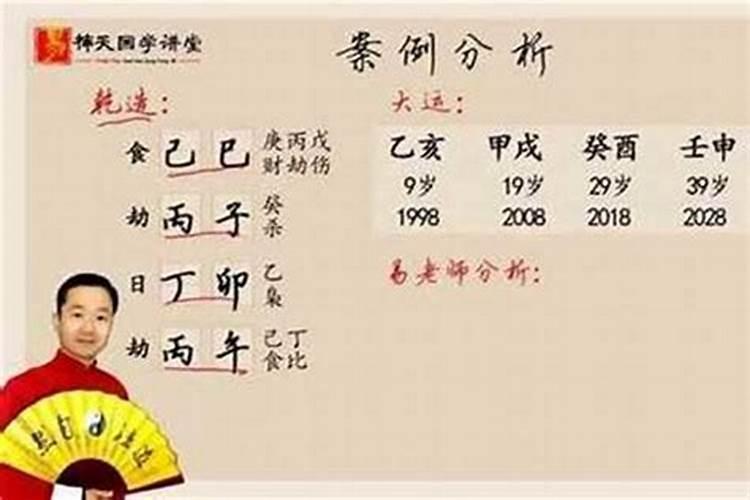 易 禅天国学讲堂
案例分析
乾造：
食 己巳 庚丙戊
财劫伤
劫 丙子 癸
杀
日 丁卯 乙
枭
劫 丙午 己丁
食比
大运：
乙亥 甲戌 癸酉 壬申
9岁 19岁 29岁 39岁
1998 2008 2018 2028
易老师分析：